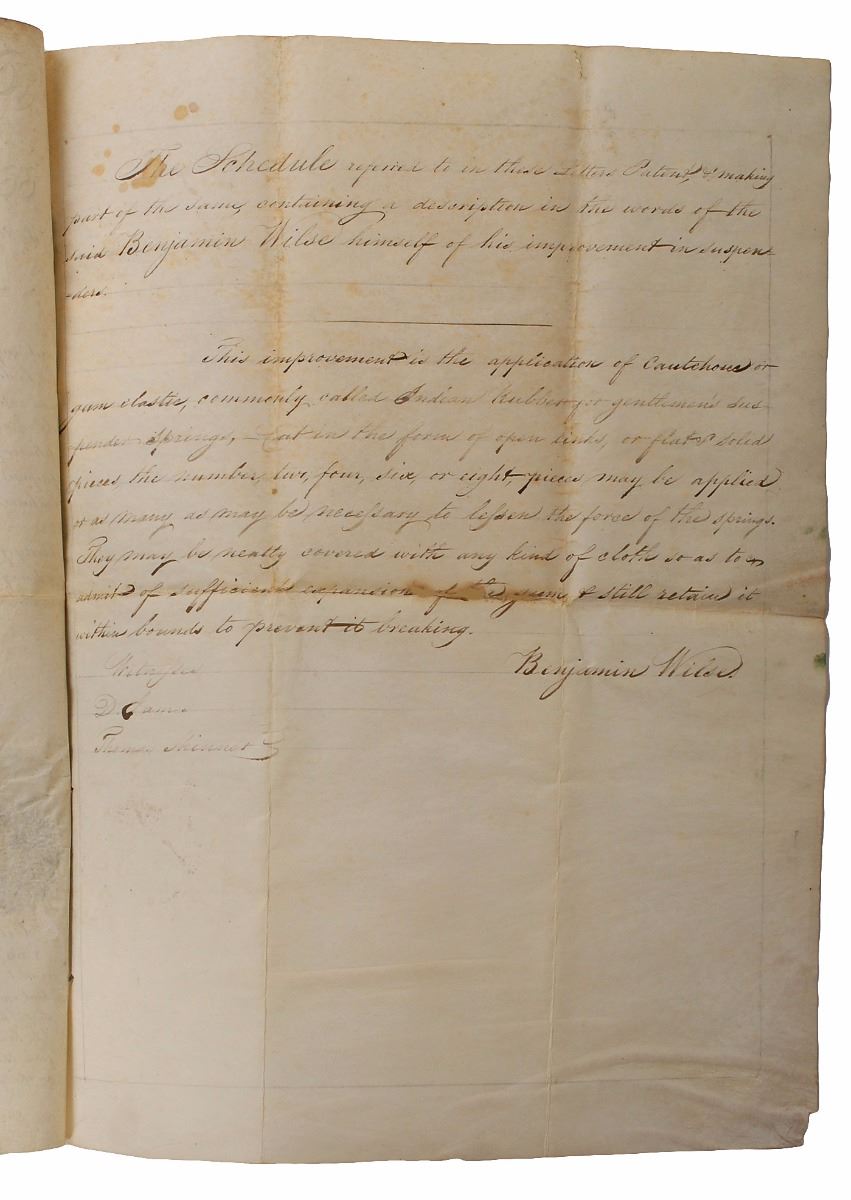 The Schedule referred to in these Letters Patent, & making
part of the same, containing a description in the words of the
said Benjamin Wilse himself of his improvement in suspen-
-ders.
This improvement is the application of Cautchouc or
gum elastic, commonly called Indian Rubber for gentlemen's sus-
-pender springs, – cut in the form of open links, or flat & solid
pieces, the number, two, four, six, or eight pieces may be applied
or as many as may be necessary to lessen the force of the springs.
They may be neatly covered with any kind of cloth so as to
admit of sufficient expansion of the gum & still retain it
within bounds to prevent it breaking.
Witnesses
Benjamin Wilse.
Thomas Skinner